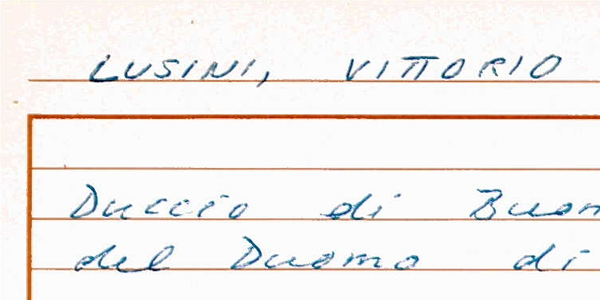 LUSINI, VITTORIO
Duccio di Buon
del Duomo di